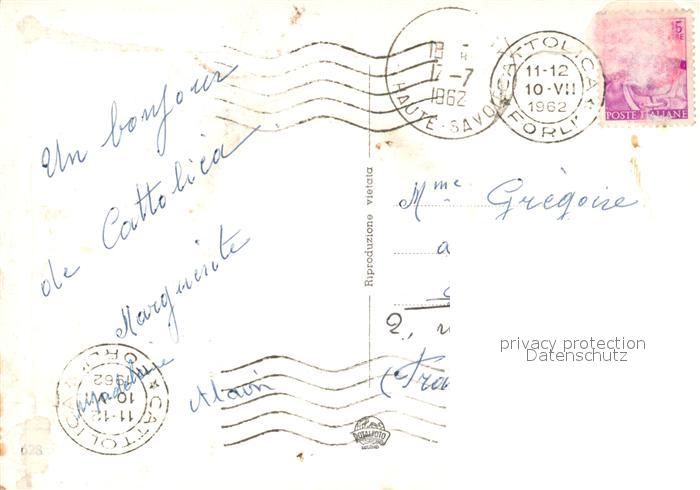 Un bonjour
de Cattolica
Marguerite
Madeleine
Alain
Riproduzione vietata
18 -
H
17-7
1962
HAUTE-SAVOIE
CATTOLICA
11-12
10-VII
1962
FORLI
15
LIRE
POSTE ITALIANE
Mme Grégoire
a
2,
(Fra
privacy protection
Datenschutz
CATTOLICA
11-12
10
1962
FORLI
ROTALFOTO
MILANO
628